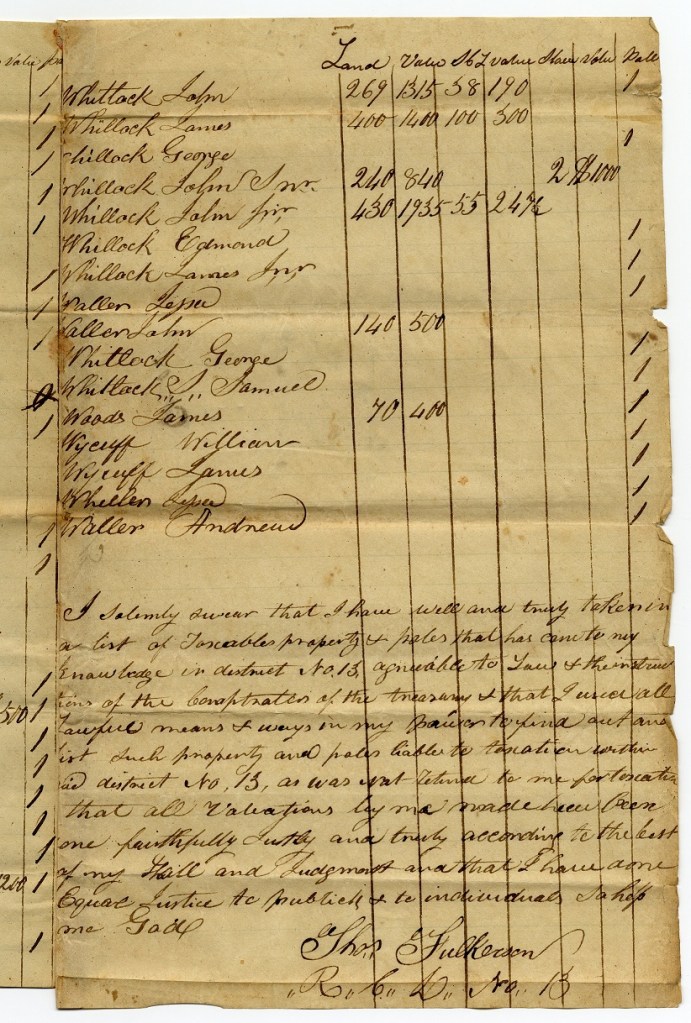 Value
Land Value S L value Slave Value Poll
Whitlock John 269 1315 38 190 1
Whillock James 400 1400 100 300
hillock George 1
Whillock John Snr. 240 840 2 $1000
Whillock John Jnr 430 1935 55 247½
Whillock Edmond 1
Whillock James Jnr 1
Waller Jesse
aller John 140 500
Whitlock George 1
Whitlock S. Samuel 1
Woods James 70 400 1
Wycuff William 1
Wycuff James 1
Wheller Jesse 1
Waller Andrew 1
I solemly swear that I have well and truly taken in
a list of Toxeables property & poles that has came to my
Knowledge in district No. 13, agreiable to Laws & the instruc
tions of the Comptrater of the treasurey & that I used all
Lawful means & ways in my Power to find out and
ist such property and poles liable to toxation within
aid district No, 13, as was not 
 to me for toxatio
that all Valuations by me made have been
one faithfully Justly and truly according to the best
of my Skill and Judgment and that I have done
Equal Justice to publick & to individuals So help
me God
Thos. Fulkerson
R,, C,, D,, No,, 13
500
1200